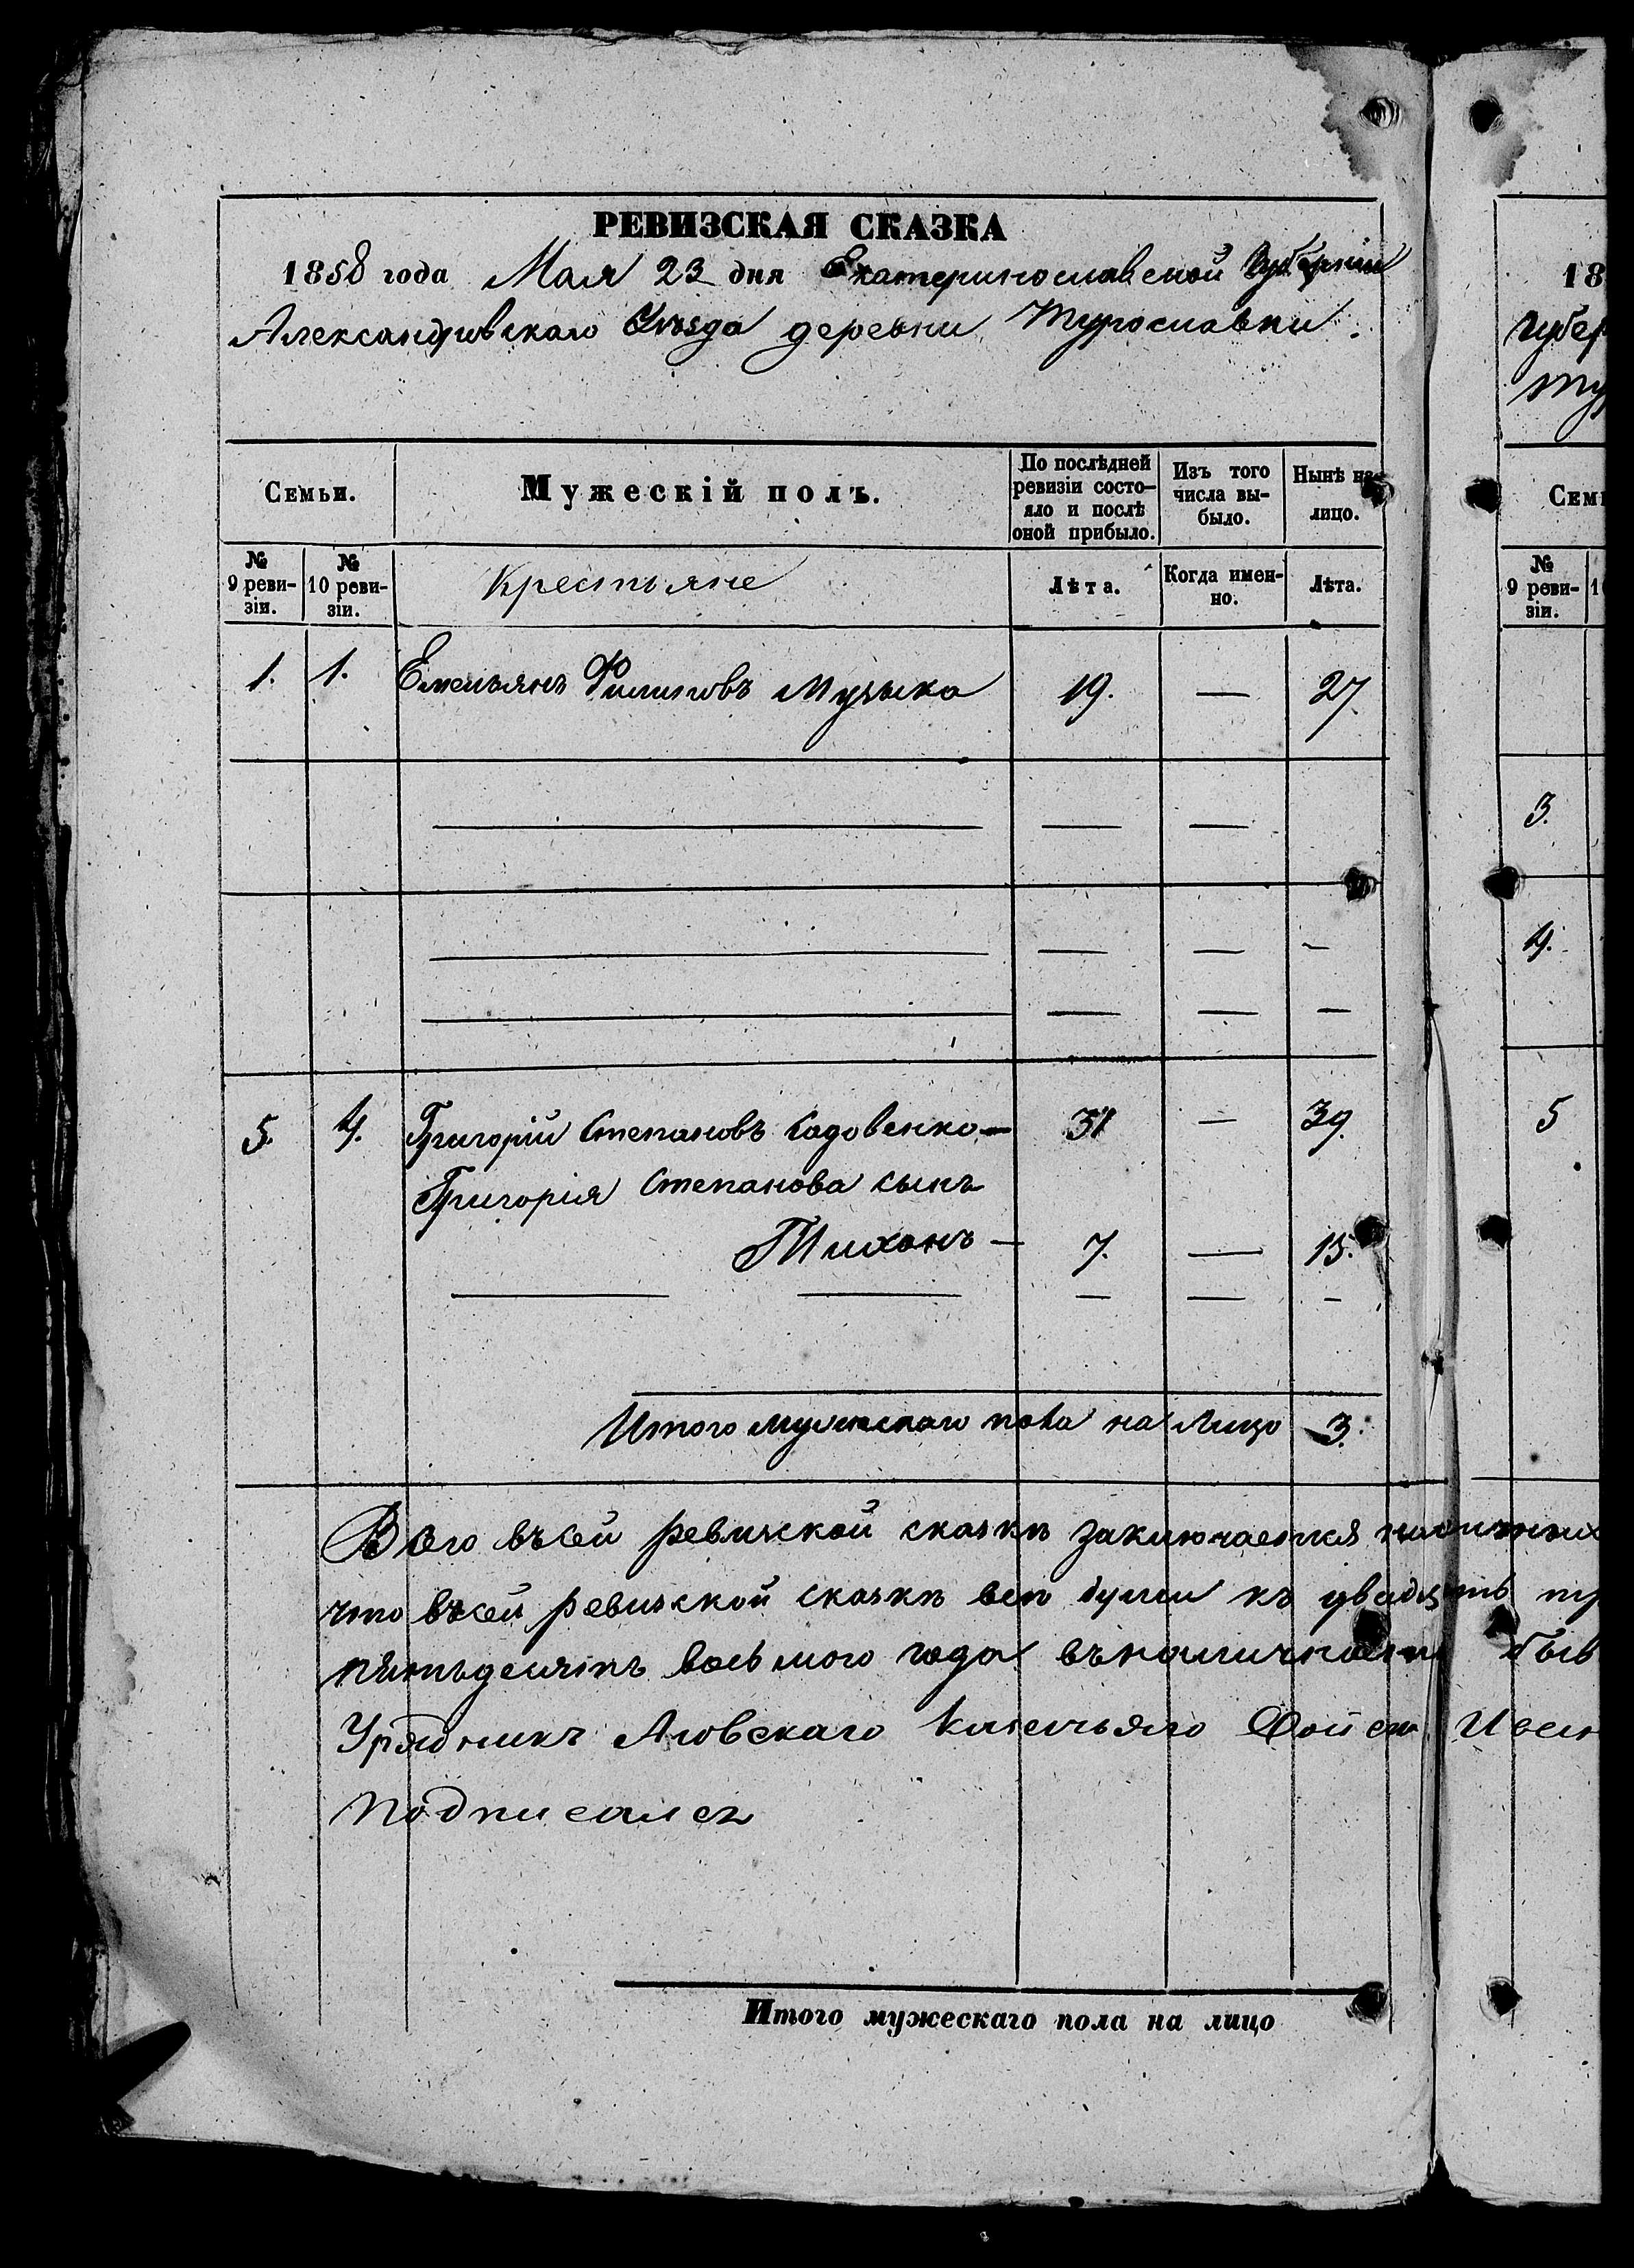 РЕВИЗСКАЯ СКАЗКА
1858 года Мая 23 дня Екатеринославской Губерніи
Александровскаго Уѣзда деревни Турославки.
Семьи.
Мужескій полъ.
По послѣдней ревизіи состо-
яло и послѣ
оной прибыло.
Изъ того
числа вы-
было.
Нынѣ на
лицо.
№
9 реви-
зіи.
№
10 реви-
зіи.
Крестьяне
Лѣта.
Когда имен-
но.
Лѣта.
1. 1. Емельянъ Филиповъ Музыка 19. — 27.
5. 4. Григорій Степановъ Садовенко — 31 — 39.
Григорія Степанова сынъ
Тихонъ — 7. — 15.
Итого мужескаго пола на Лицо 3.
Всего въ сей ревизской сказкѣ заключается наличных
что въ сей ревизской сказкѣ всѣ души къ двадцать тр
пятьдесятъ восьмого года въ наличности быв
Урядникъ Азовскаго Казачьяго Войска
подписалсь
Итого мужескаго пола на лицо
18
губер
Тур
Сем
№
9 реви-
зіи.
3.
4.
5